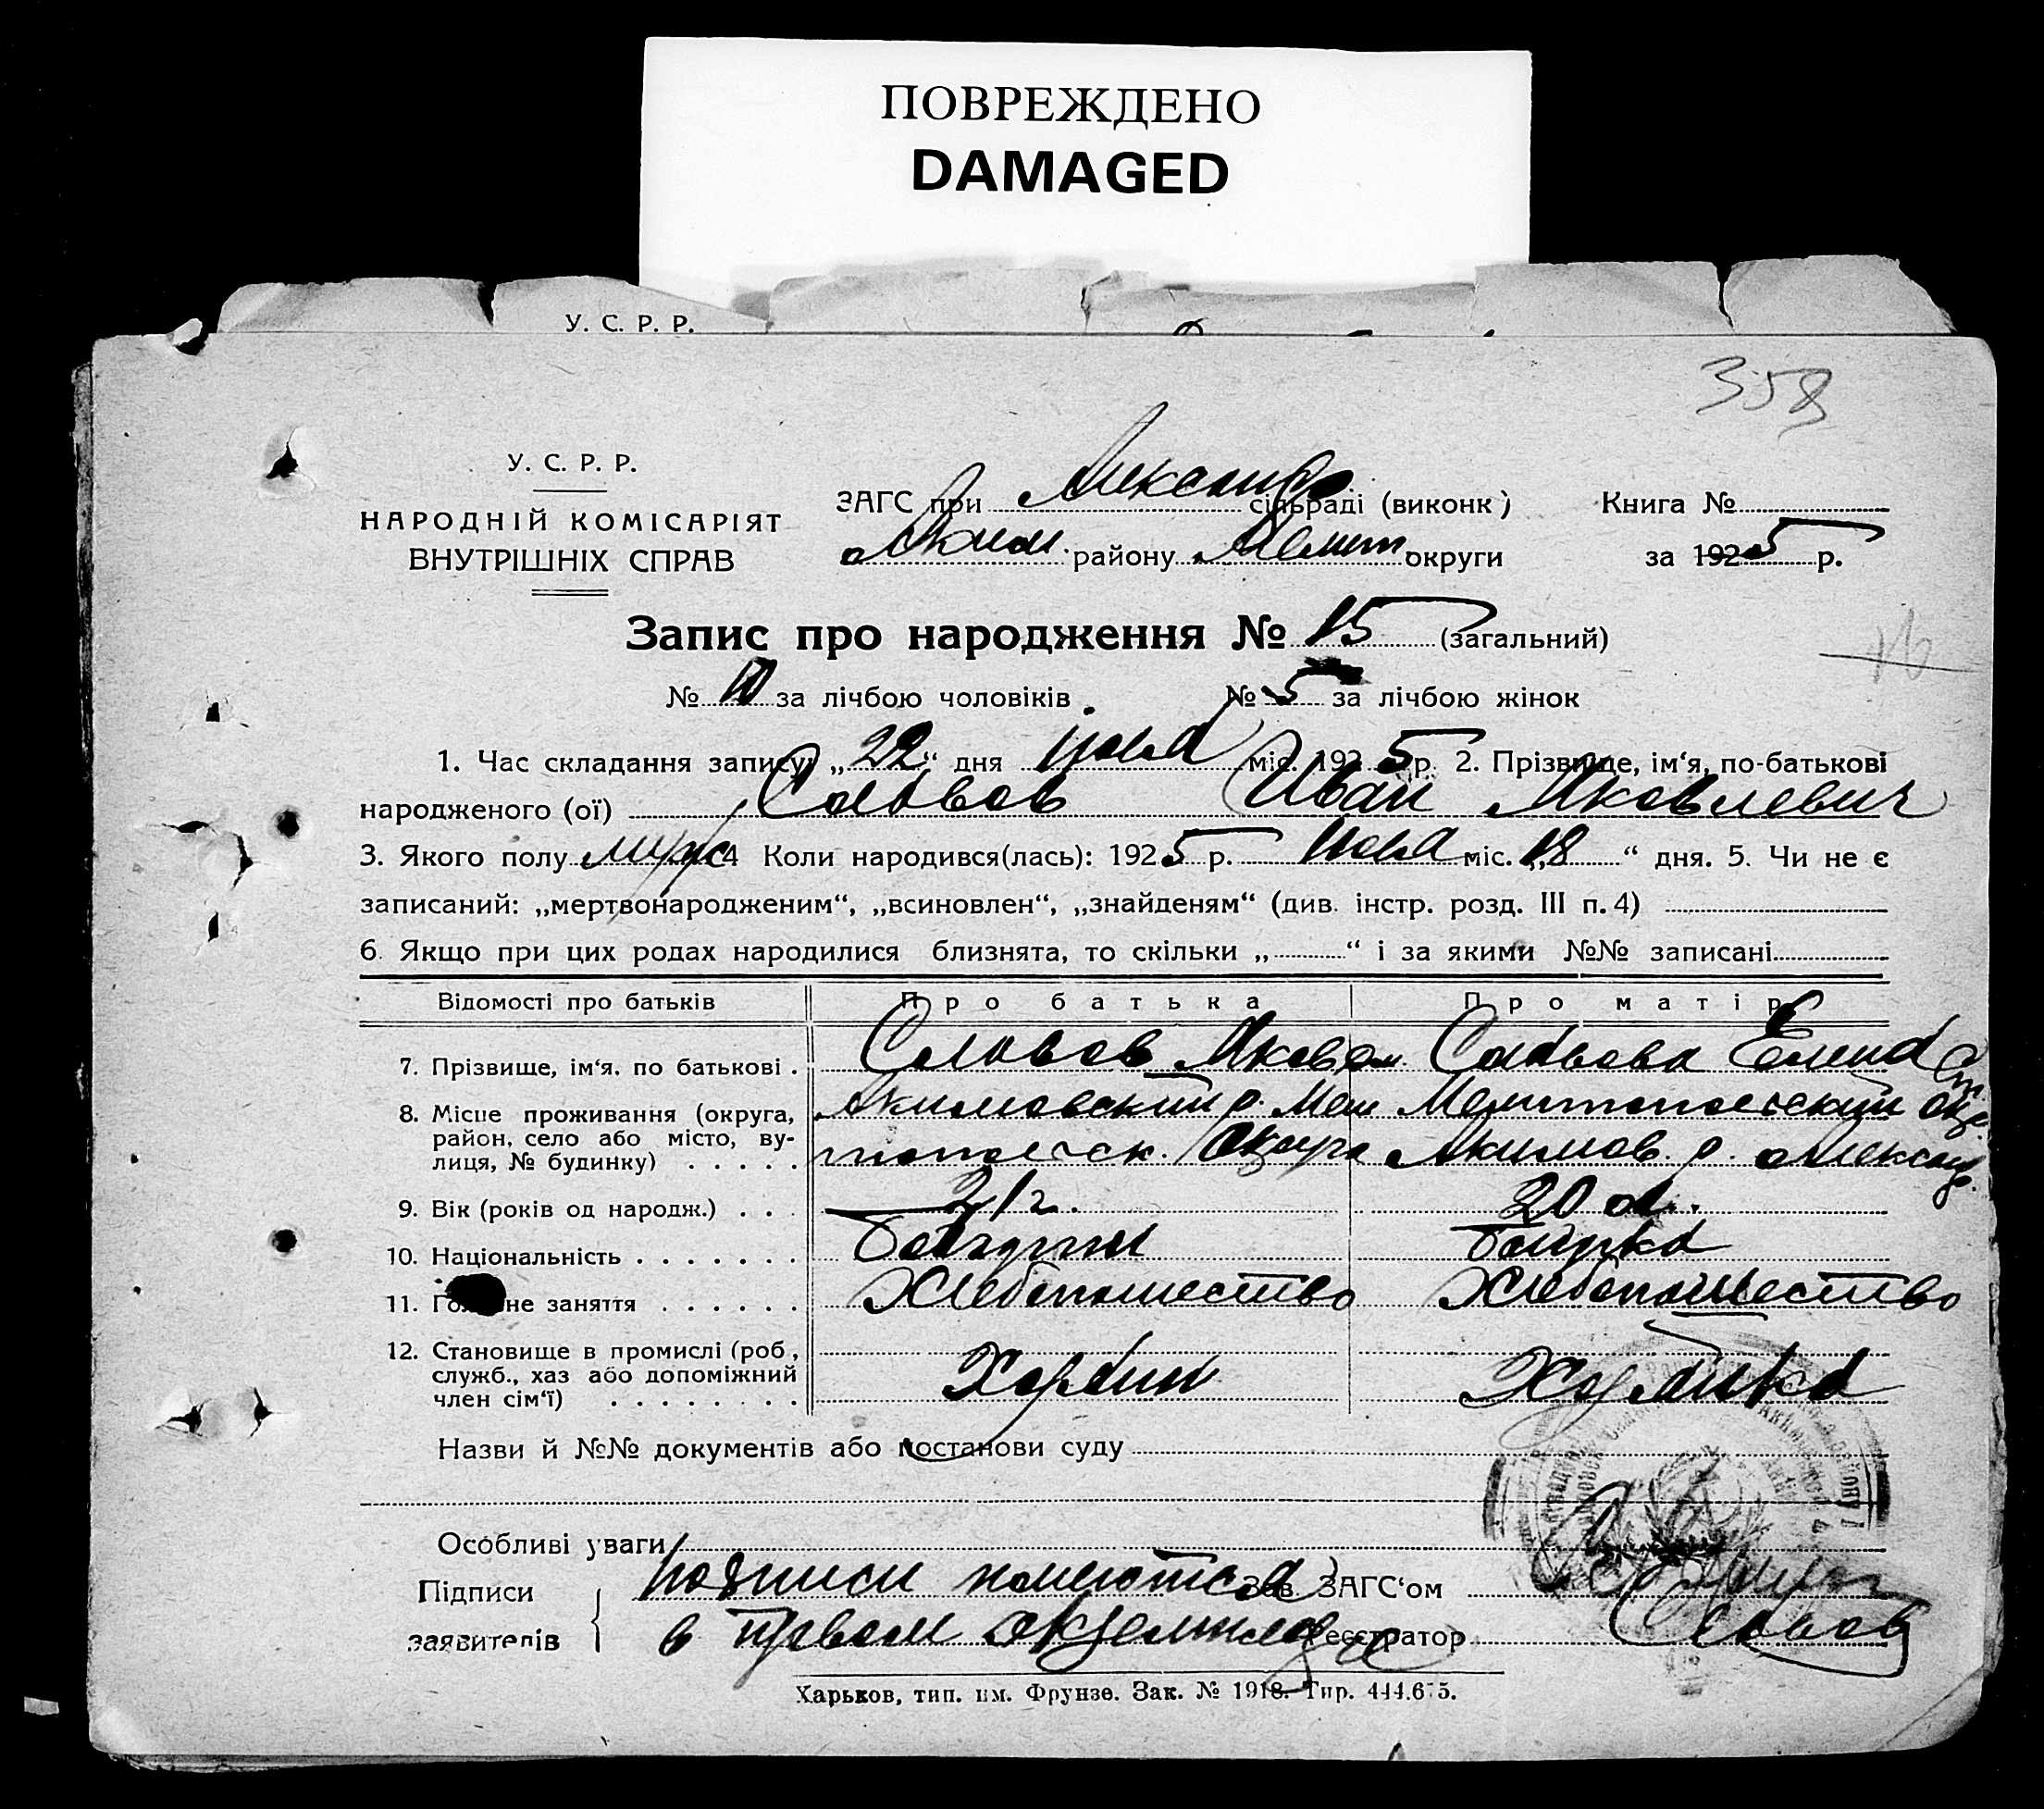 ПОВРЕЖДЕНО
DAMAGED
У. С. Р. Р.
358
У. С. Р. Р.
НАРОДНІЙ КОМІСАРІЯТ
ВНУТРІШНІХ СПРАВ
ЗАГС при Александр сільраді (виконк) Книга №
Аким. району Мелит округи за 1925 р.
Запис про народження № 15 (загальний)
16
№ 10 за лічбою чоловіків № 5 за лічбою жінок
1. Час складання запису „22“ дня июля міс. 1925 р. 2. Прізвище, ім‘я, по-батькові
народженого (ої) Иван Яковлевич
3. Якого полу муж 4 Коли народився(лась): 1925 р. июля міс. „18“ дня. 5. Чи не є
записаний: „мертвонародженим“, „всиновлен“, „знайденям“ (див. інстр. розд. III п. 4)
6. Якщо при цих родах народилися близнята, то скільки „ “ і за якими №№ записані
Відомості про батьків Про батька Про матір
7. Прізвище, ім‘я, по батькові . Яков Елена
8. Місце проживання (округа, Акимовский р. Мели Мелитопольский окр.
район, село або місто, ву-
лиця, № будинку) . . . . . топольск. Округа Акимов. р. Александр.
9. Вік (років од народж.) . . . 21 г. 20 л.
10. Національність . . . . . . . Болгарин
11. Голо не заняття . . . . . . Хлебопашество Хлебопашество
12. Становище в промислі (роб,
служб., хаз або допоміжний
член сім‘ї) . . . . . . . . Хозяин Хозяйка
Назви й №№ документів або постанови суду
Особливі уваги
Підписи подписи имеются Зав. ЗАГС‘ом
заявителів в первом экземпляре Реєстратор
Харьков, тип. им. Фрунзе. Зак. № 1918. Тир. 444.675.